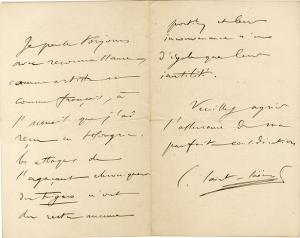 Je pense toujours
avec reconnaissance,
comme artiste et
comme français, à
l'accueil que j'ai
reçu en Hongrie.
les attaques de
l'agaçant chroniqueur
des Tigres n'ont
du reste aucune
portée et leur
inconvenance n'a
d'égale que leur
inutilité.
Veuillez agréer
l'assurance de ma
parfaite considération
C. Saint-Saëns